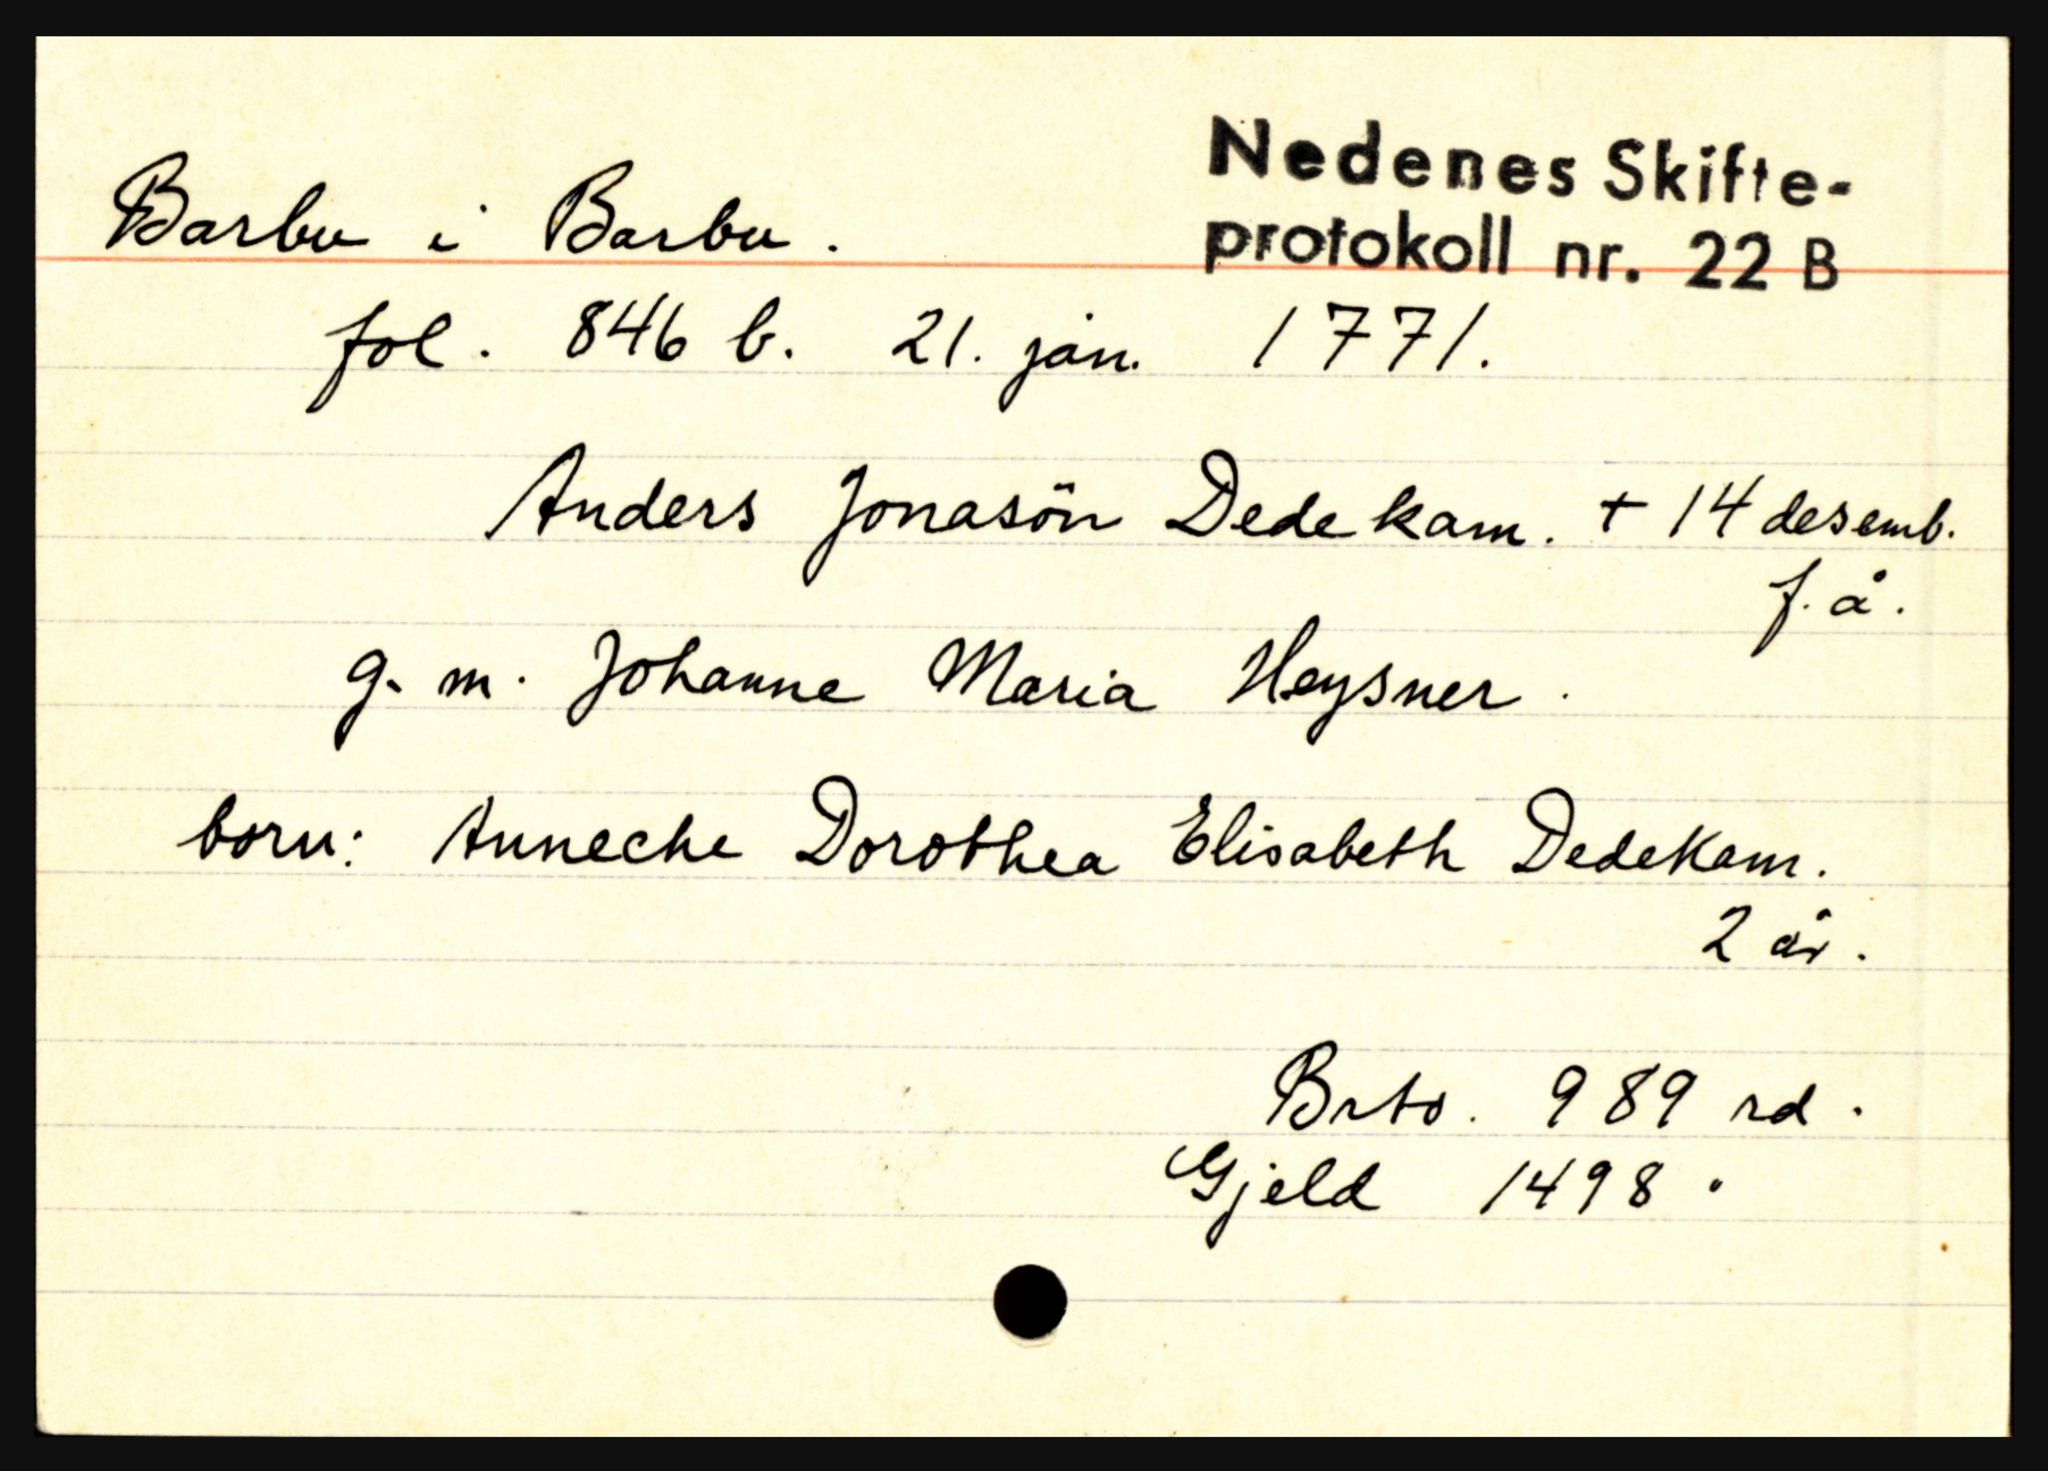 Nedenes Skifte-
protokoll nr. 22 B
Barbu i Barbu.
fol. 846 b. 21. jan. 1771.
Anders Jonasön Dedekam. + 14 desemb.
f. å.
g. m. Johanne Maria Heysner.
born: Anneche Dorothea Elisabeth Dedekam.
2 år.
Brto. 989 rd.
Gjeld 1498.